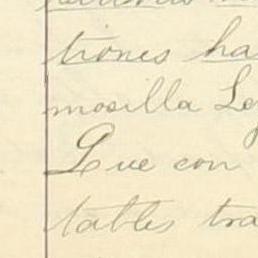 tiones ha
mosilla Le
Que con
tables tra